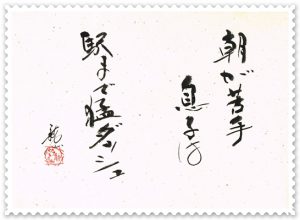 朝が苦手
息子は
駅まで猛ダッシュ